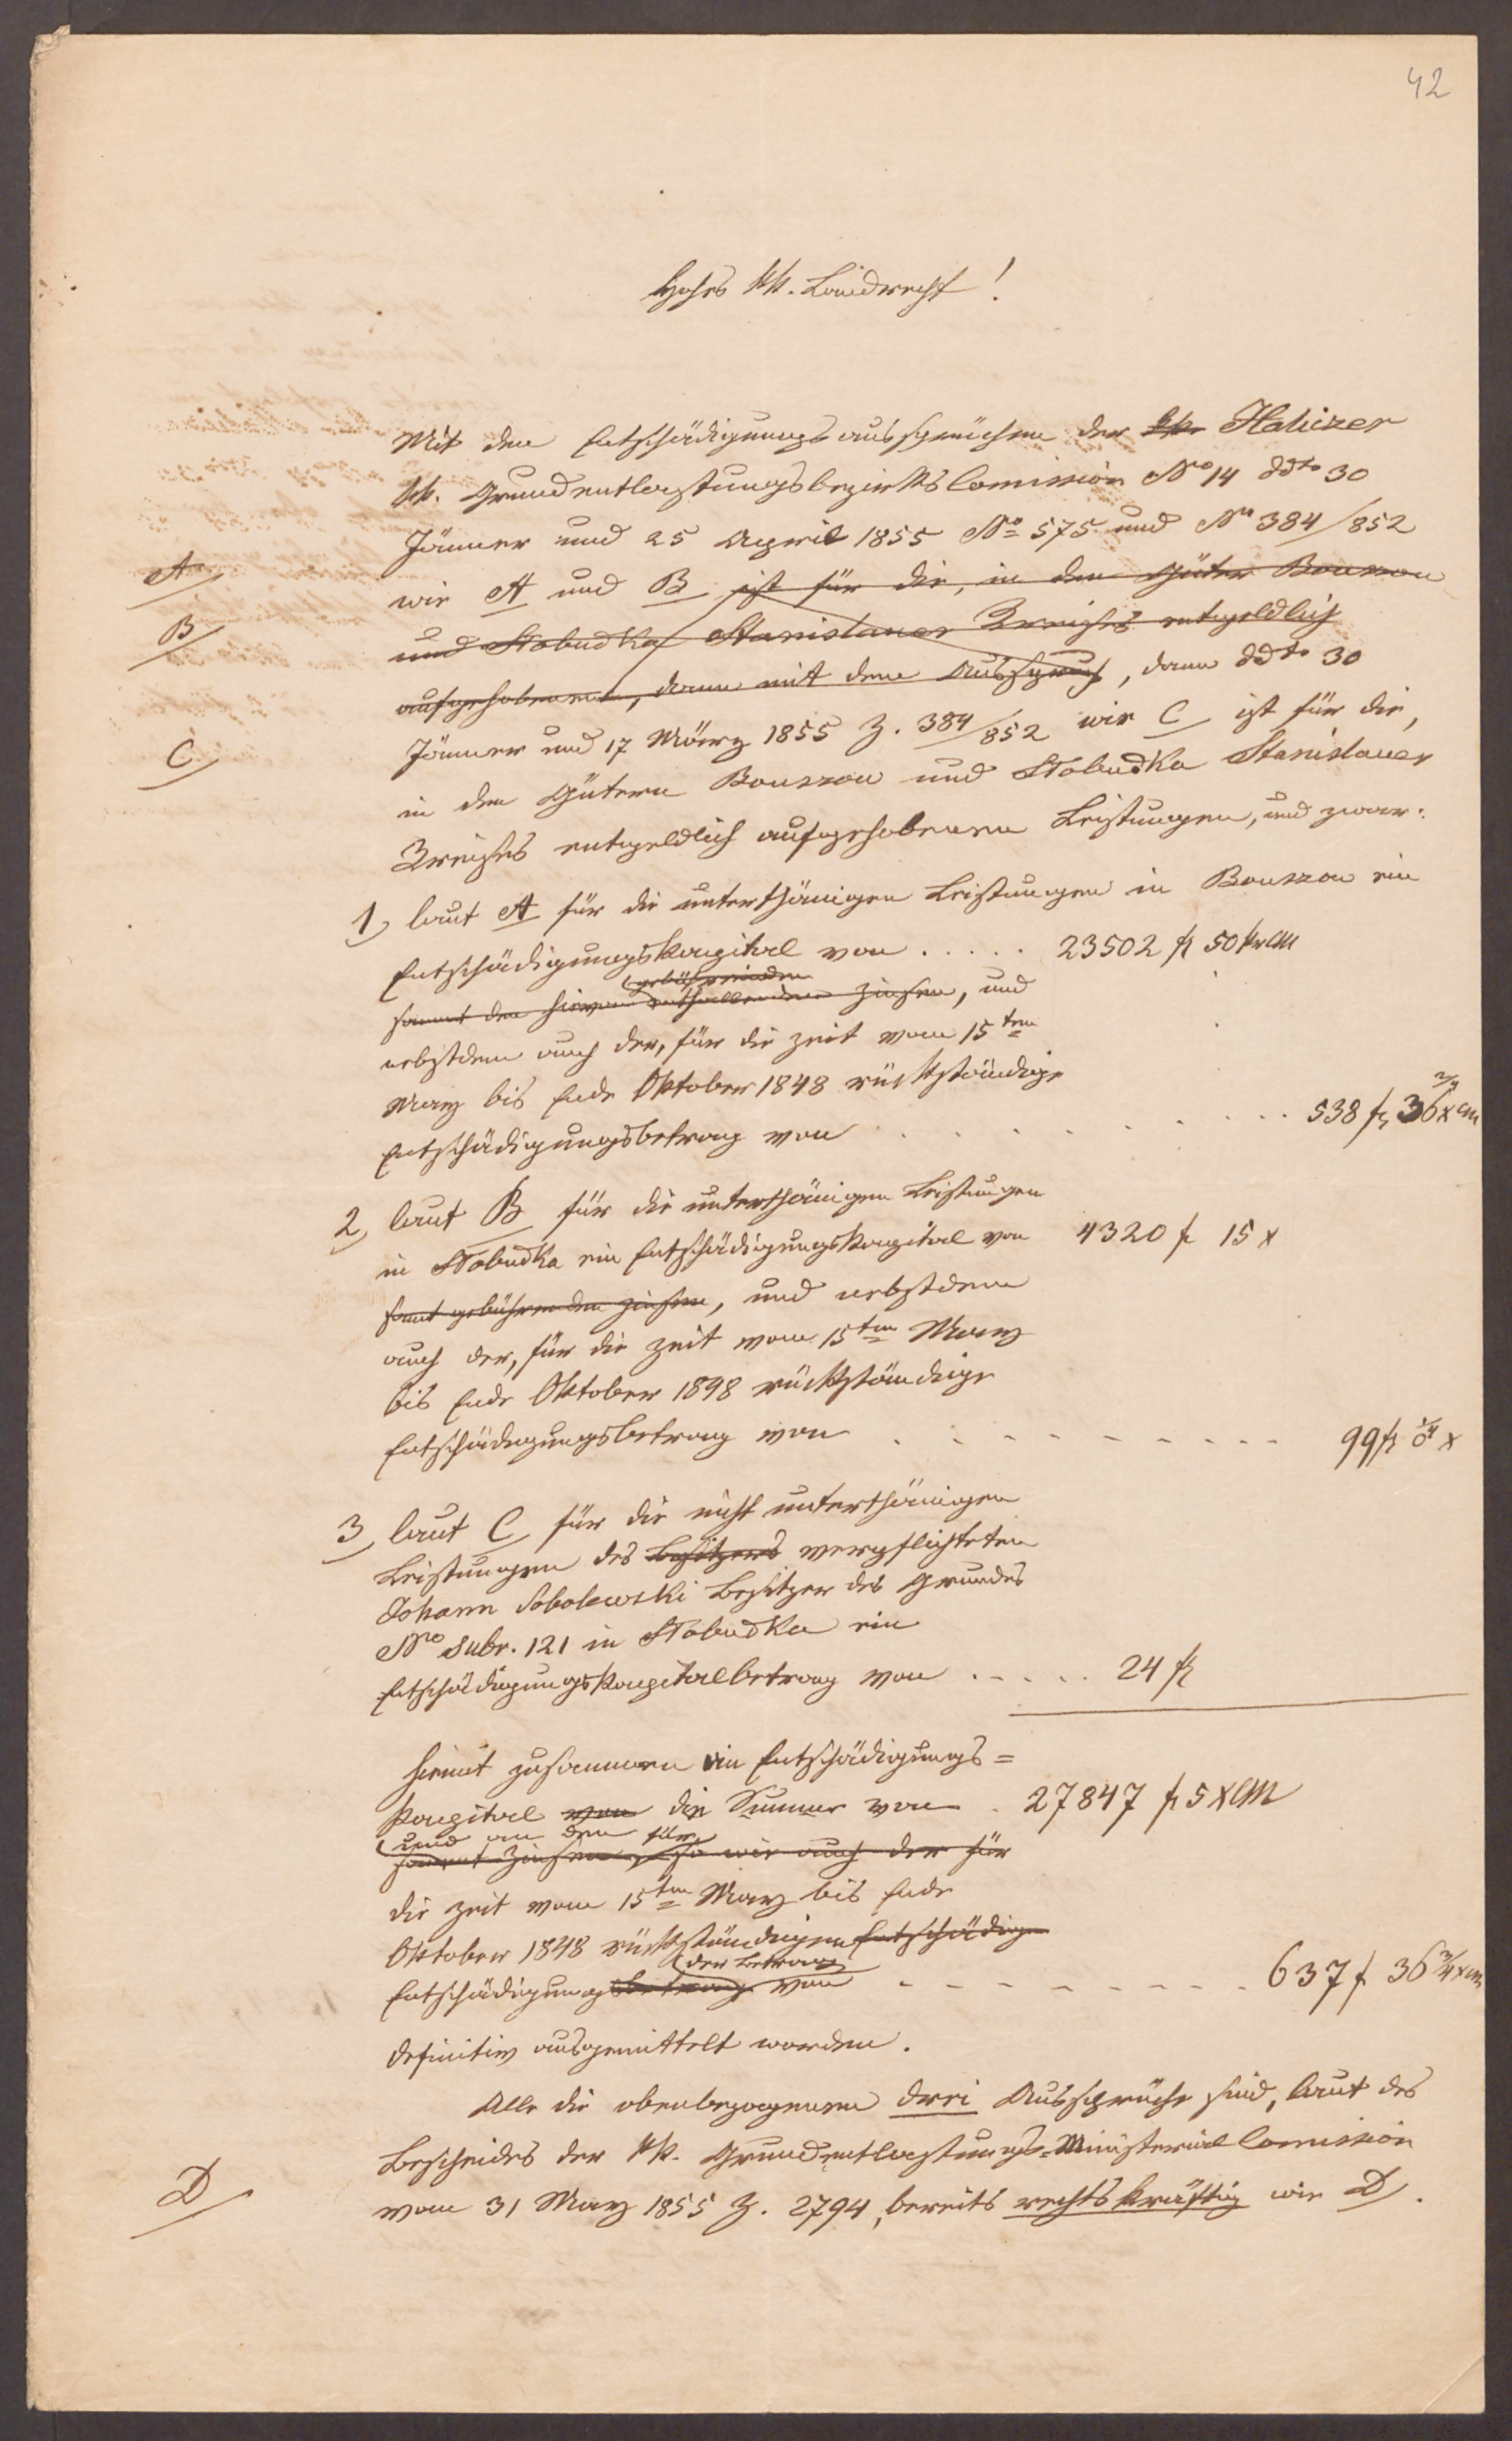 42
Hohes kk. Landrecht!
Mit den Entschädigungsaussprüchen der kk. Halizer
kk. Grundentlastungsbezirkskommission No 14 ddto 30
Jänner und 25 April 1855 No 575 und No 384/852
A
wie A und B ist für die, in den Güter Bouszow
B
und Słobudka Stanislauer Kreises entgeldlich
aufgehobenen, dann mit dem Ausspruch, dann ddto 30
C
Jänner und 17 März 1855 Z. 384/852 wie C ist für die,
in den Gütern Bouszow und Słobudka Stanislauer
Kreises entgeldlich aufgehobenen Leistungen, und zwar:
1, laut A für die unterthänigen Leistungen in Bouszow ein
Entschädigungskapital von ..... 23502 f 50 kr CM
gebührenden
sammt den hievon entfallenden Zinsen, und
nebstdem auch der, für die Zeit vom 15ten
März bis Ende Oktober 1848 rückständige
Entschädigungsbetrag von ........ 538 f 36 2/4 x CM
2, laut B für die unterthänigen Leistungen
in Słobudka ein Entschädigungskapital von 4320 f 15 x
samt gebührenden Zinsen, und nebstdem
auch der, für die Zeit vom 15ten März
bis Ende Oktober 1898 rückständige
Entschädigungsbetrag von - - - - - - - - - 99 f 0 1/4 x
3, laut C für die nicht unterthänigen
Leistungen des Besitzers verpflichteten
Johann Sobolewski Besitzer des Grundes
No subr. 121 in Słobudka ein
Entschädigungskapitalbetrag von ..... 24 f
hiemit zusammen ein Entschädigungs=
kapital von die Summe von . 27847 f 5 x CM
und an den für
sammt Zinsen, so wie auch der für
die Zeit vom 15ten März bis Ende
Oktober 1848 rückständigen Entschädig
der Betrag
Entschädigungsbetrag von - - - - - - - - 637 f 36 3/4 x CM
definitiv ausgemittelt worden.
Alle die obenbezogenen drei Aussprüche sind, laut des
Bescheides der kk. Grundentlastungs-Ministerial Commission
D
vom 31 März 1855 Z. 2794, bereits rechtskräftig wie D.